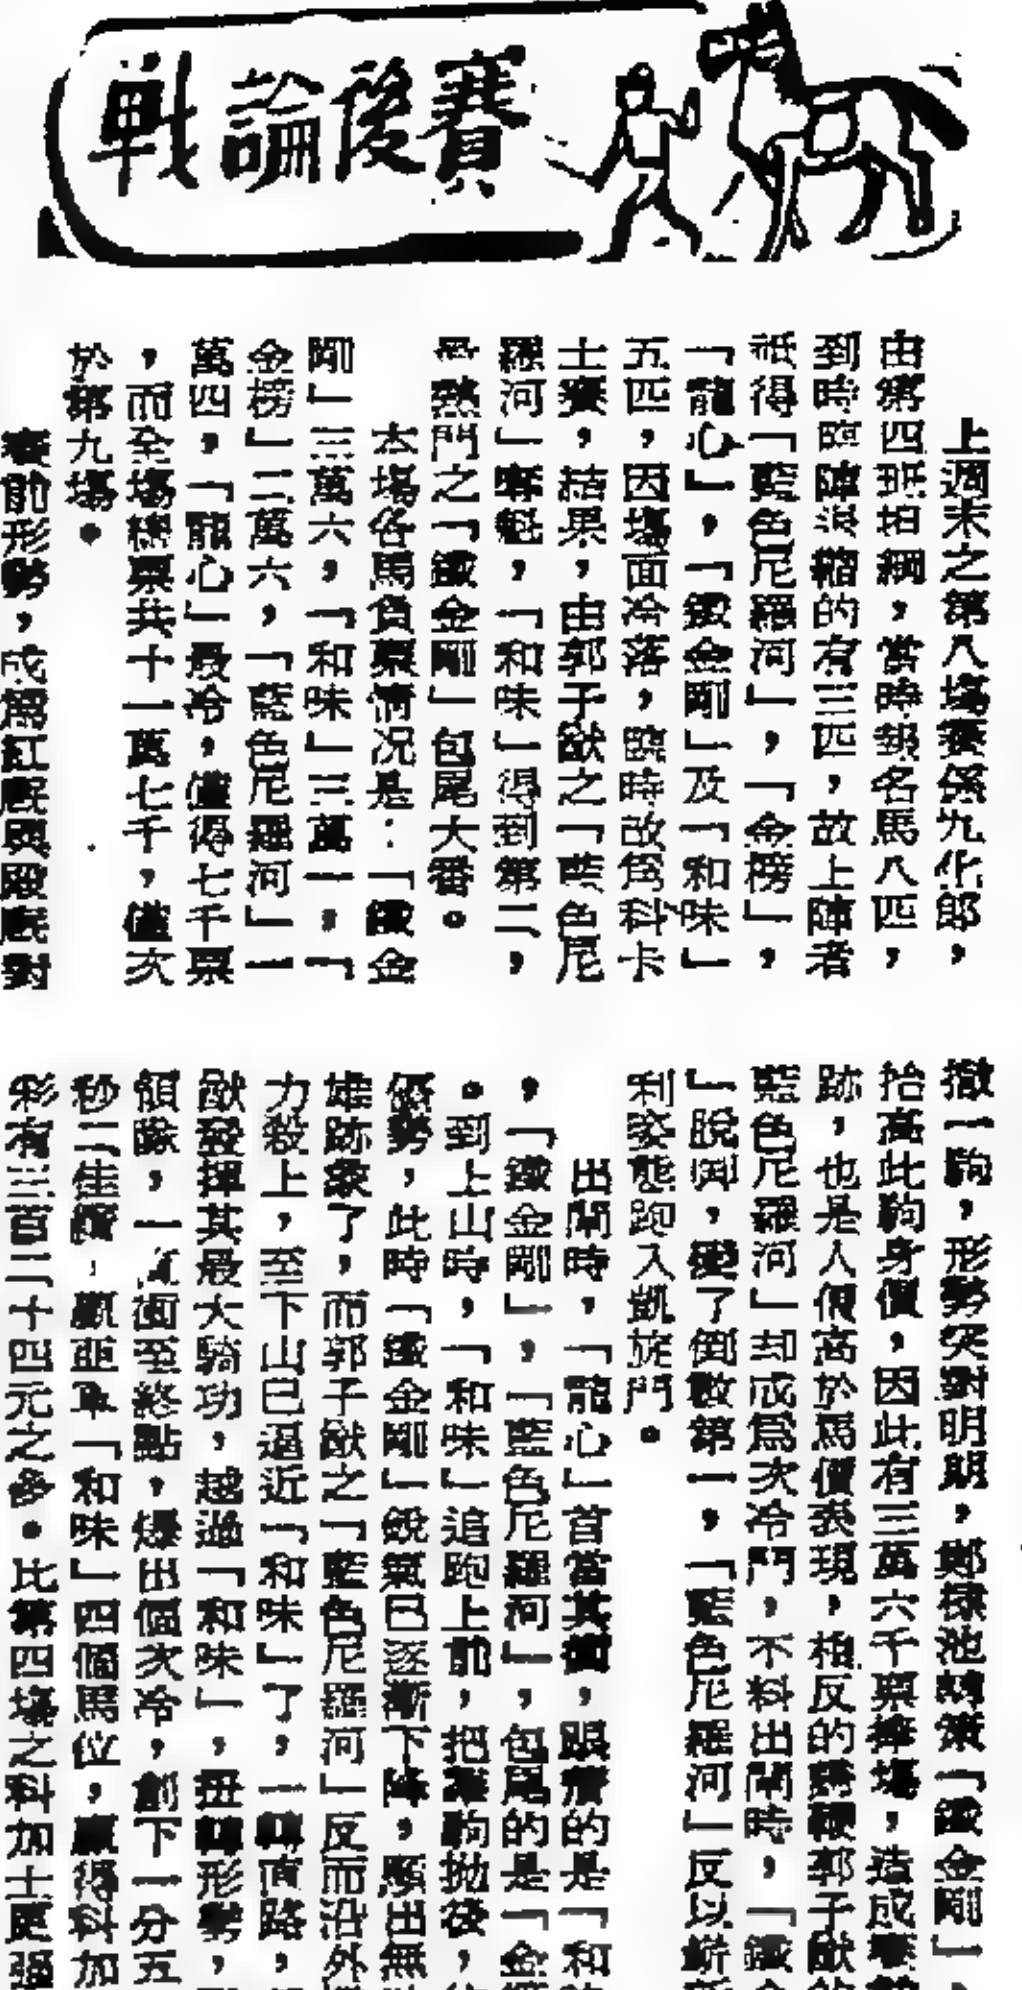 賽後論戰
上週末之第八塲賽係九化郎，
由第四班拍綱，當時報名馬八匹，
到時臨陣退縮的有三匹，故上陣者
祇得「藍色尼羅河」，「金榜」，
「龍心」，「鐵金剛」及「和味」
五匹，因塲面冷落，臨時改爲科卡
士賽，結果，由郭子猷之「藍色尼
羅河」奪魁，「和味」得到第二，
最熱門之「鐵金剛」包尾大番。
本塲各馬負票情況是：「鐵金
剛」三萬六，「和味」三萬一，「
金榜」二萬六，「藍色尼羅河」一
萬四，「龍心」最冷，僅得七千票
，而全塲總票共十一萬七千，僅次
於第九塲。
賽前形勢，成爲紅底與殿底對
撤一駒，形勢突對明朗，鄭棣池胡策「鐵金剛」，
抬高此駒身價，因此有三萬六千票捧塲，造成
跡，也是人價高於馬價表現，相反的誇鞭郭子猷的
藍色尼羅河」却成爲次冷門，不料出閘時，「鐵
」脫脚，變了倒數第一，「藍色尼羅河」反以嶄
利姿態跑入凱旋門。
出閘時，「龍心」首當其衝，跟着的是「和
，「鐵金剛」，「藍色尼羅河」，包尾的是「金
。到上山時，「和味」追跑上前，把羣駒拋後，
優勢，此時「鐵金剛」銳氣已逐漸下降，顯出無
雄跡象了，而郭子猷之「藍色尼羅河」反而沿外
力殺上，至下山已逼近「和味」了，一轉直路，
猷發揮其最大騎功，越過「和味」，扭轉形勢，
領隊，一直衝至終點，爆出個次冷，創下一分五
秒二佳績，贏亞軍「和味」四個馬位，贏得科加
彩有三百二十四元之多。比第四塲之科加士更強